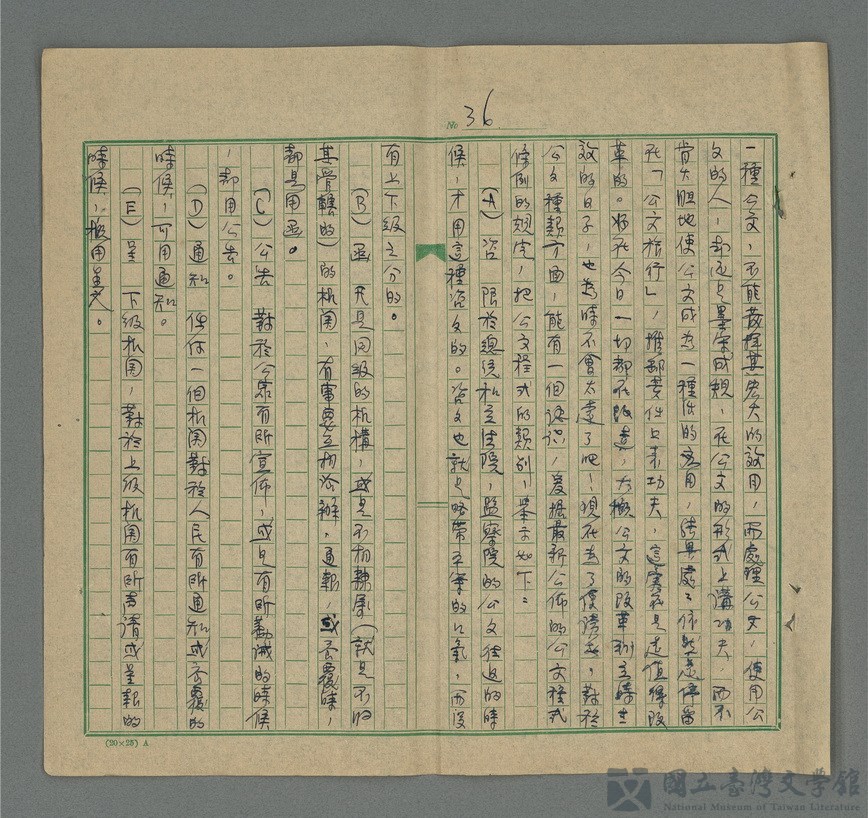 No 36
一種公文，不能發揮其宏大的效用，而處理公文，使用公
文的人，却還是墨守成規，在公文的形式上講功夫，而不
肯大胆地使公文成為一種活的應用，結果處處依然是停留
在「公文旅行」，推卸責件上来功夫，這実在是走值得改
革的。好在今日一切都在改進，大概公文的改革刷立時生
效的日子，也為時不會太遠了吧！現在為了使讀者，對於
公文種類方面，能有一個認識，爰據最新公佈的公文程式
條例的規定，把公文程式的類別，舉示如下：
（A）咨　限於總統和立法院，監察院的公文往返的時
候，才用這種咨文的。咨文也就是略帶平等的口氣，而沒
有上下級之分的。
（B）函　凡是同級的机構，或是不相隸屬（就是不归
其管轄的）的机関，有事要互相洽辦，通報，或答覆時，
都是用函。
（C）公告　對於公衆有所宣佈，或是有所勸誡的時候
，都用公告。
（D）通知　任何一個机関對於人民有所通知或答覆的
時候，可用通知。
（E）呈　下級机関，對於上級机関有所声請或呈報的
時候，應用呈文。
(20×25) A
國立臺灣文學館
National Museum of Taiwan Literature